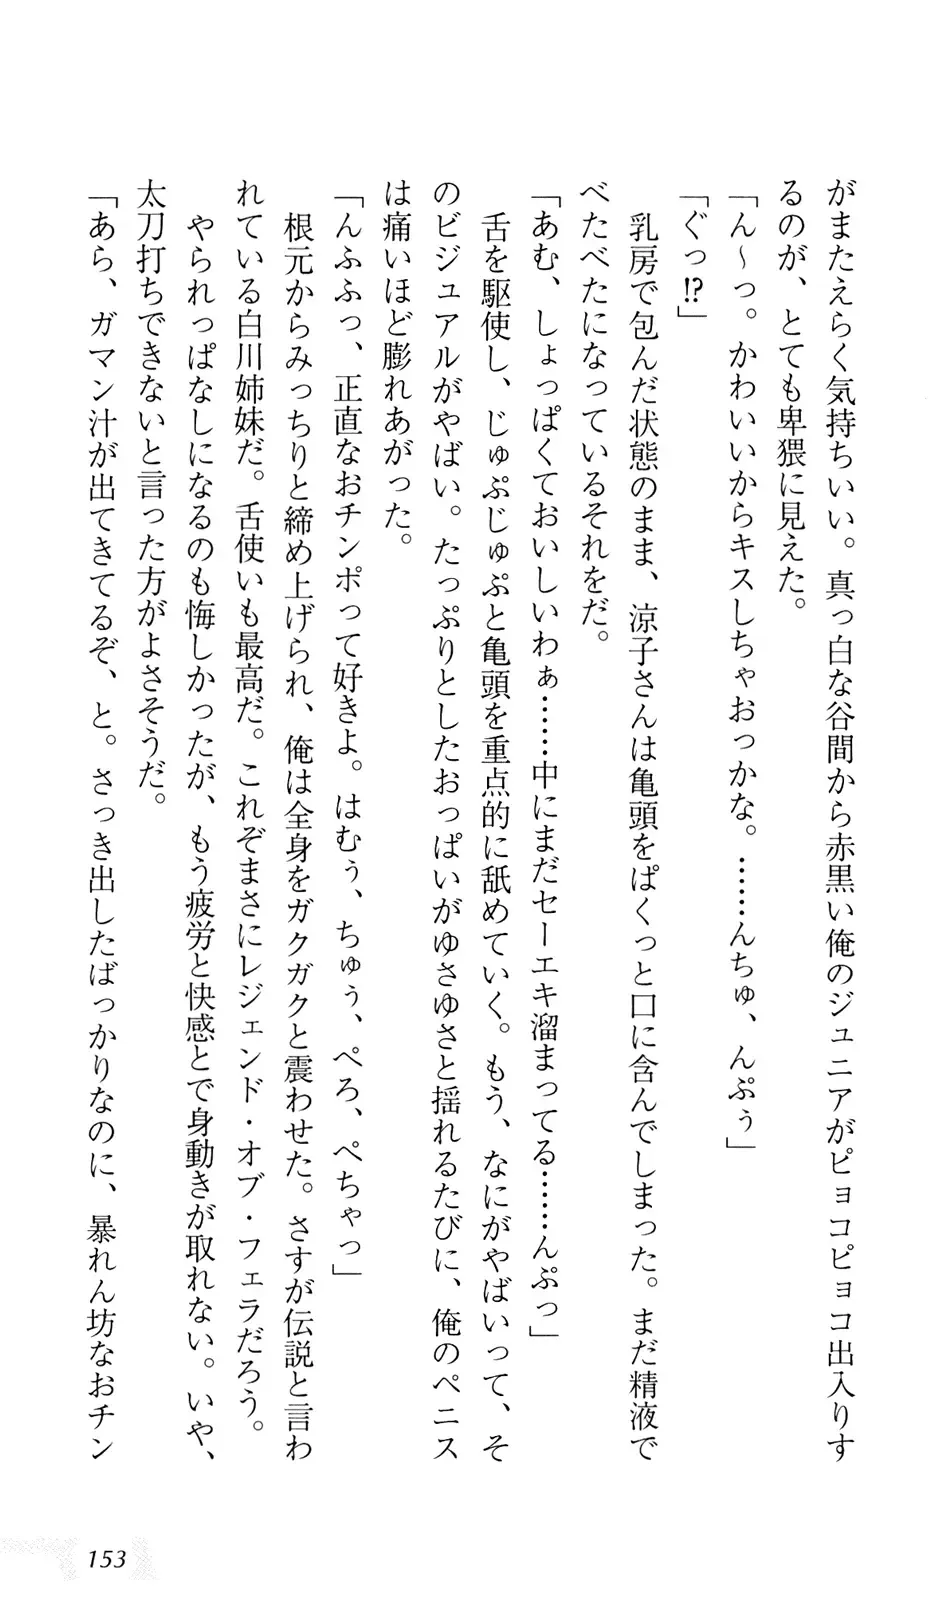 がまたえらく気持ちいい。真っ白な谷間から赤黒い俺のジュニアがピョコピョコ出入りす
るのが、とても卑猥に見えた。
「ん～っ。かわいいからキスしちゃおっかな。……んちゅ、んぷぅ」
「ぐっ!?」
乳房で包んだ状態のまま、涼子さんは亀頭をぱくっと口に含んでしまった。まだ精液で
べたべたになっているそれをだ。
「あむ、しょっぱくておいしいわぁ……中にまだセーエキ溜まってる……んぷっ」
舌を駆使し、じゅぷじゅぷと亀頭を重点的に舐めていく。もう、なにがやばいって、そ
のビジュアルがやばい。たっぷりとしたおっぱいがゆさゆさと揺れるたびに、俺のペニス
は痛いほど膨れあがった。
「んふふっ、正直なおチンポって好きよ。はむぅ、ちゅぅ、ぺろ、ぺちゃっ」
根元からみっちりと締め上げられ、俺は全身をガクガクと震わせた。さすが伝説と言わ
れている白川姉妹だ。舌使いも最高だ。これぞまさにレジェンド・オブ・フェラだろう。
やられっぱなしになるのも悔しかったが、もう疲労と快感とで身動きが取れない。いや、
太刀打ちできないと言った方がよさそうだ。
「あら、ガマン汁が出てきてるぞ、と。さっき出したばっかりなのに、暴れん坊なおチン
153